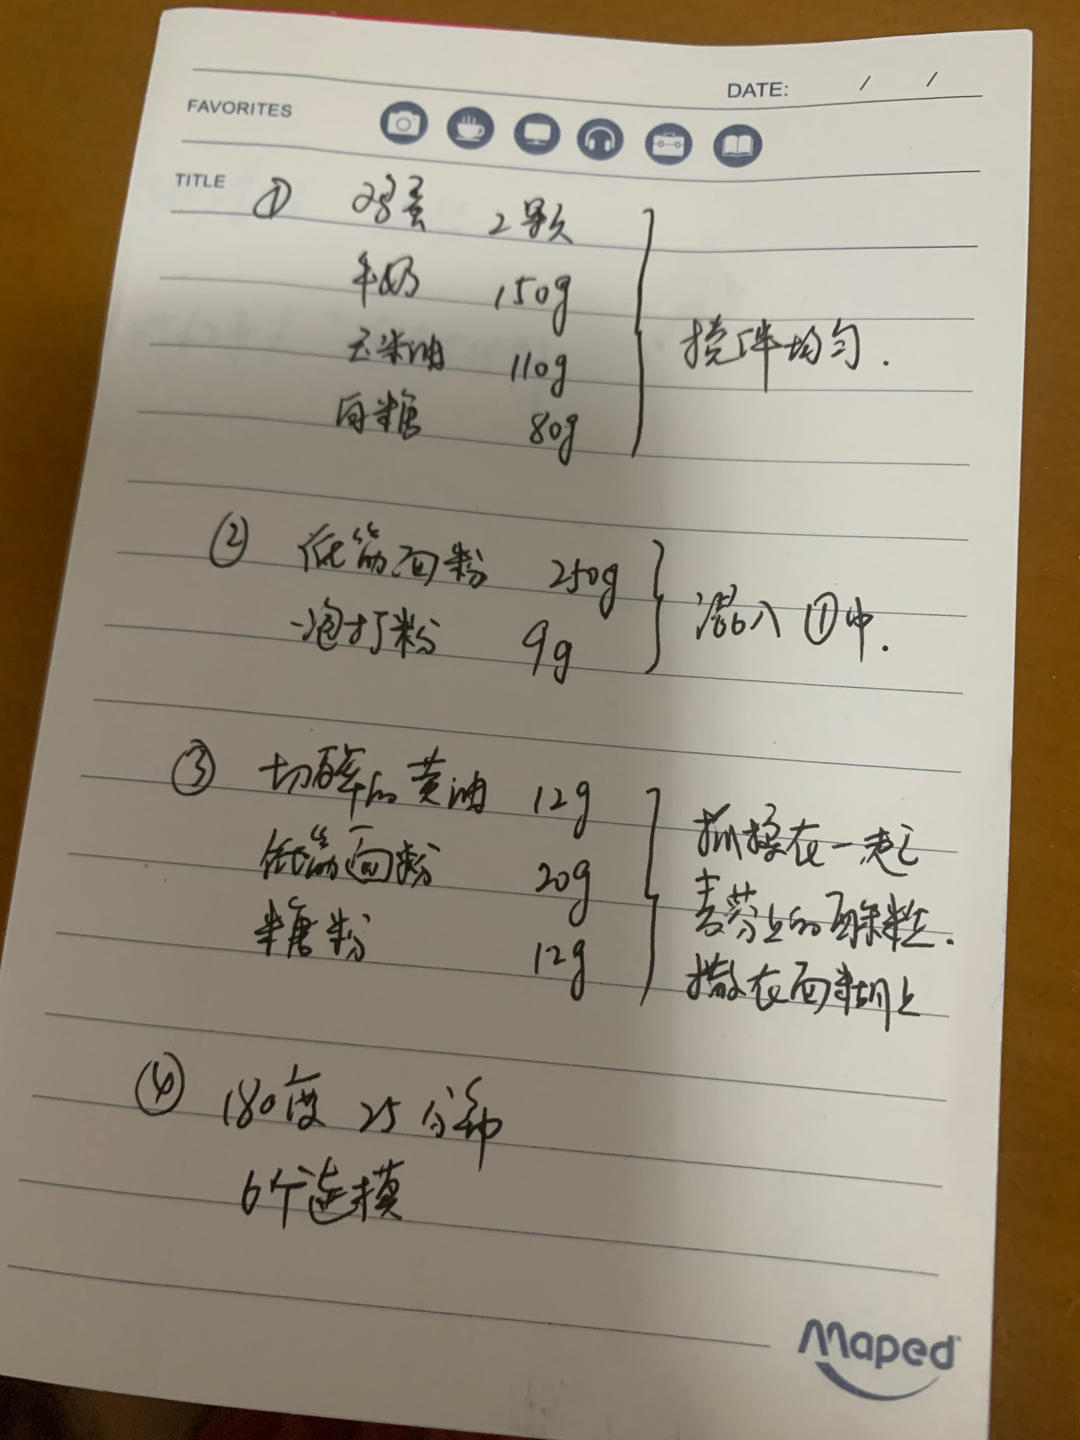 DATE: / /
FAVORITES
TITLE
① 鸡蛋 2颗
牛奶 150g
玉米油 110g
白糖 80g
搅拌均匀.
② 低筋面粉 250g
泡打粉 9g
混入①中.
③ 切碎的黄油 12g
低筋面粉 20g
糖粉 12g
抓揉在一起
麦芬上的酥粒.
撒在面糊上
④ 180度 25分钟
6个连模
Maped